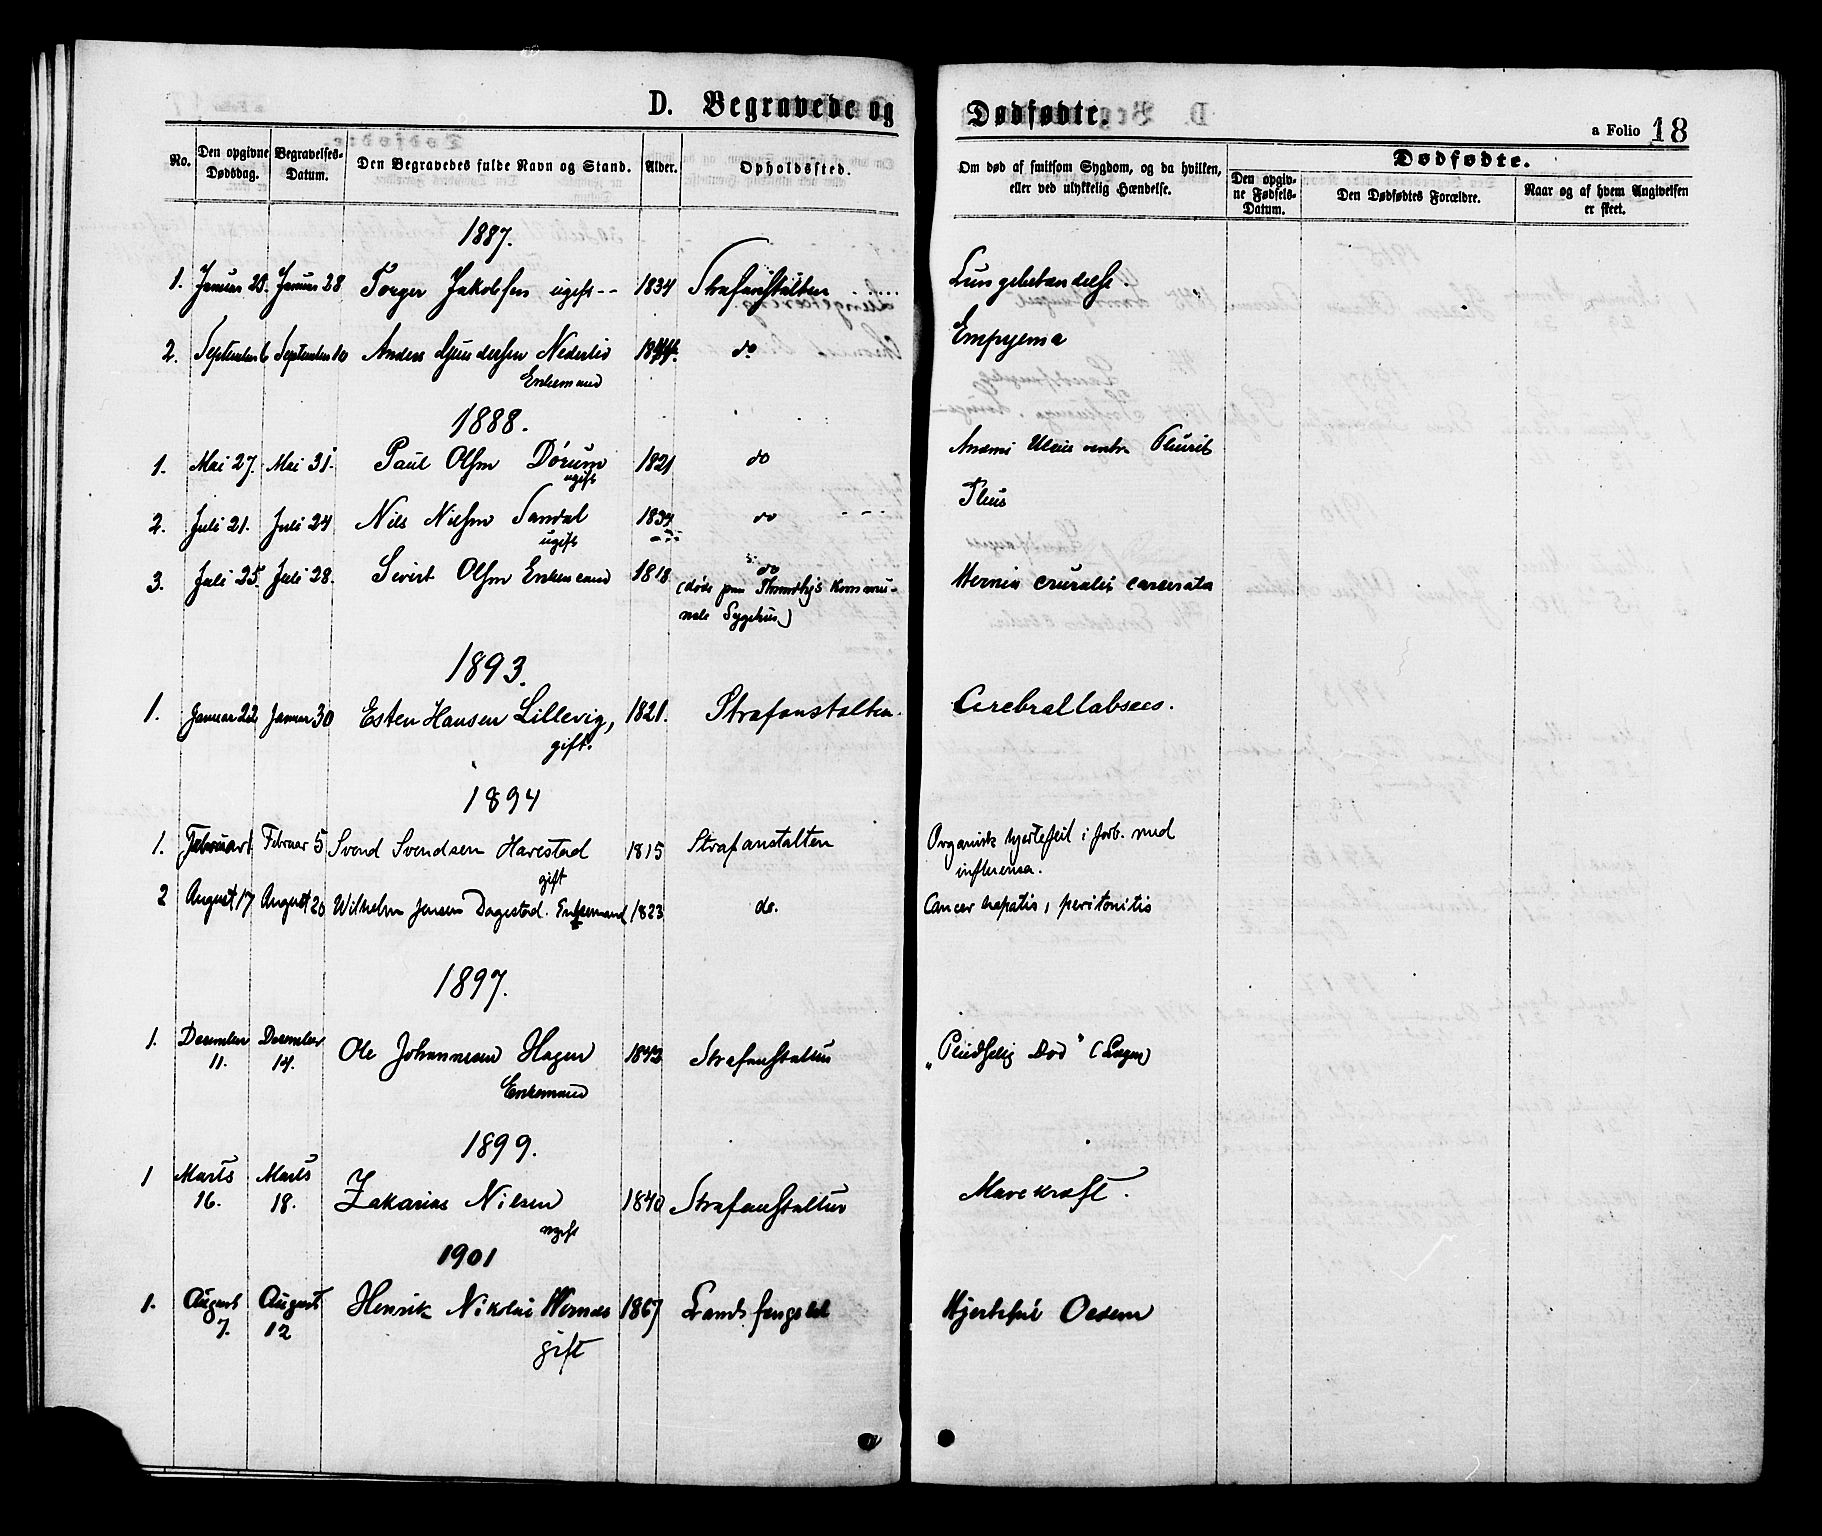 D. Begravede og Dødfødte.
a Folio 18
No. Den opgivne Dødsdag. Begravelses-Datum. Den Begravedes fulde Navn og Stand. Alder. Opholdssted. Om død af smitsom Sygdom, og da hvilken, eller ved ulykkelig Hændelse.
Dødfødte.
Den opgivne Fødsels-Datum. Den Dødfødtes Forældre. Naar og af hvem Angivelsen er skeet.
1887.
1. Januar 25. Januar 28 Torger Jakobsen ugift -- 1834 Strafanstalten Lungebetændelse.
2. September 6 September 10 Anders Gundersen 1844. do Empyema
Enkemand
1888.
1. Mai 27. Mai 31. Paul Olsen Dørum 1821 do Anæmi Ulcus ventr. Pleurit
ugift
2. Juli 21. Juli 24 Nils Nilsen Sandal 1834 do
ugift
3. Juli 25. Juli 28. Sivert Olsen Enkemand 1818 do Hernia cruralis
(døde paa Trondhj's kommunale Sygehus)
1893.
1. Januar 22 Januar 30 Esten Hansen Lillevig, 1821. Strafanstalten. Cerebral absces.
gift.
1894
1. Februar 1 Februar 5 Svend Svendsen Harestad 1815 Strafanstalten Organisk hjertefeil i forb. med
gift influensa.
2 August 17 August 20 Wilhelm Jensen Dagestad. Enkemand 1823 do. Cancer hepatis, peritonitis
1897.
1. December 11. December 14. Ole Johannesen Hagen 1843 Strafanstalten "Pludselig Død" (Lægen)
Enkemand
1899.
1 Marts 16. Marts 18. Zakarias Nilsen 1840 Strafanstalten Mavekræft.
ugift
1901
1. August 7. August 12 Henrik Nikolai 1867 Landsfengslet Hjertefeil Oedem
gift